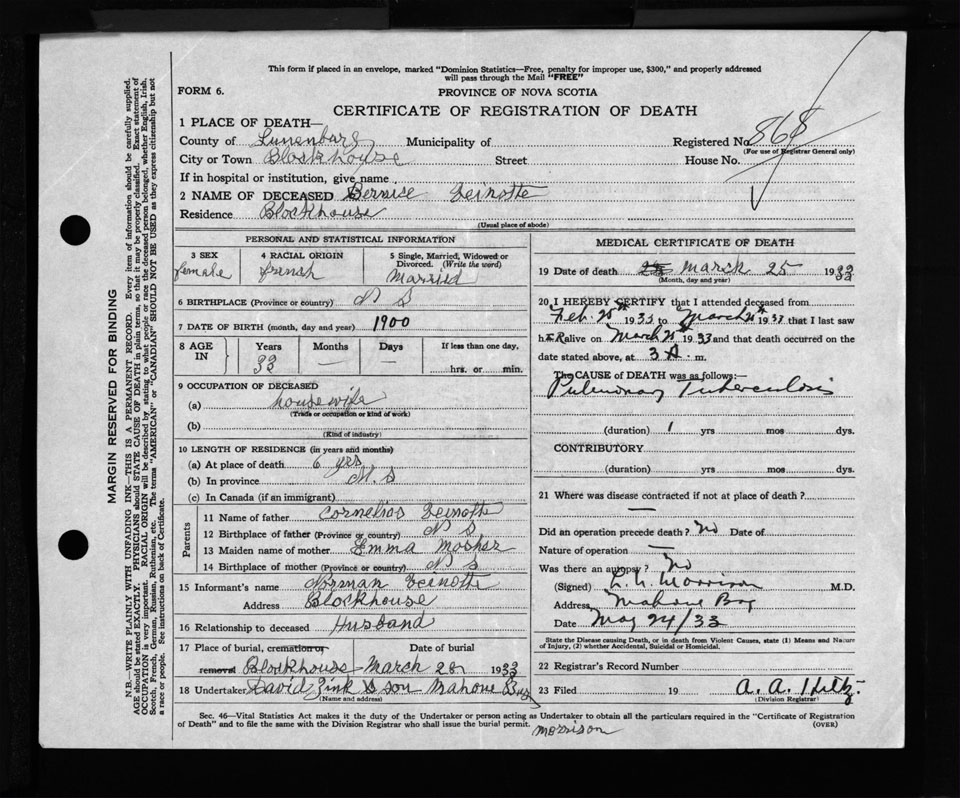 This form if placed in an envelope, marked "Dominion Statistics—Free, penalty for improper use, $300," and properly addressed
will pass through the Mail "FREE"
FORM 6.
PROVINCE OF NOVA SCOTIA
CERTIFICATE OF REGISTRATION OF DEATH
1 PLACE OF DEATH—
County of Lunenburg Municipality of Registered No. 868
(For use of Registrar General only)
City or Town Blockhouse Street House No.
If in hospital or institution, give name
2 NAME OF DECEASED Bernice Zeinotte
Residence Blockhouse
(Usual place of abode)
PERSONAL AND STATISTICAL INFORMATION
3 SEX 4 RACIAL ORIGIN 5 Single, Married, Widowed or
Divorced. (Write the word)
female french Married
6 BIRTHPLACE (Province or country) N S
7 DATE OF BIRTH (month, day and year) 1900
8 AGE IN Years Months Days If less than one day,
33 — — hrs. or min.
9 OCCUPATION OF DECEASED
(a) housewife
(Trade or occupation or kind of work)
(b)
(Kind of industry)
10 LENGTH OF RESIDENCE (in years and months)
(a) At place of death 6 yrs
(b) In province N. S
(c) In Canada (if an immigrant)
Parents
11 Name of father Cornelios Zeinotte
12 Birthplace of father (Province or country) N S
13 Maiden name of mother Emma Mosher
14 Birthplace of mother (Province or country) N S
15 Informant's name Norman Zeinotte
Address Blockhouse
16 Relationship to deceased Husband
17 Place of burial, cremation or Date of burial
removal Blockhouse March 28 1933
18 Undertaker David Zink & son Mahone Bay
(Name and address)
MEDICAL CERTIFICATE OF DEATH
19 Date of death 25 March 25 1933
(Month, day and year)
20 I HEREBY CERTIFY that I attended deceased from
Feb. 25th 1933 to March 25th 1933 that I last saw
her alive on March 25th 1933 and that death occurred on the
date stated above, at 3 A. m.
The CAUSE of DEATH was as follows:—
Pulmonary Tuberculosis
(duration) 1 yrs mos dys.
CONTRIBUTORY
(duration) yrs mos dys.
21 Where was disease contracted if not at place of death?
—
Did an operation precede death? No Date of
Nature of operation —
Was there an autopsy? No
(Signed) Morrison M.D.
Address Mahone Bay
Date May 24/33
State the Disease causing Death, or in death from Violent Causes, state (1) Means and Nature
of Injury, (2) whether Accidental, Suicidal or Homicidal.
22 Registrar's Record Number
23 Filed 19 A. A. Hiltz.
(Division Registrar)
Sec. 46—Vital Statistics Act makes it the duty of the Undertaker or person acting as Undertaker to obtain all the particulars required in the "Certificate of Registration
of Death" and to file the same with the Division Registrar who shall issue the burial permit. (OVER)
Morrison
MARGIN RESERVED FOR BINDING
N.B.—WRITE PLAINLY WITH UNFADING INK—THIS IS A PERMANENT RECORD. Every item of information should be carefully supplied.
AGE should be stated EXACTLY. PHYSICIANS should STATE CAUSE OF DEATH in plain terms, so that it may be properly classified. Exact statement of
OCCUPATION is very important. RACIAL ORIGIN will be described by stating to what people or race the deceased person belonged, whether English, Irish,
Scotch, French, German, Russian, Ruthenian, etc. The terms "AMERICAN" or "CANADIAN" SHOULD NOT BE USED as they express citizenship but not
a race or people. See instructions on back of Certificate.